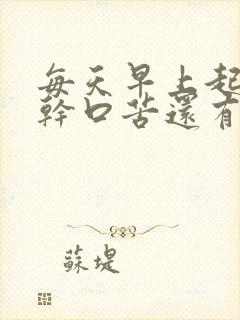 每天早上起
幹口苦還有
蘇堤